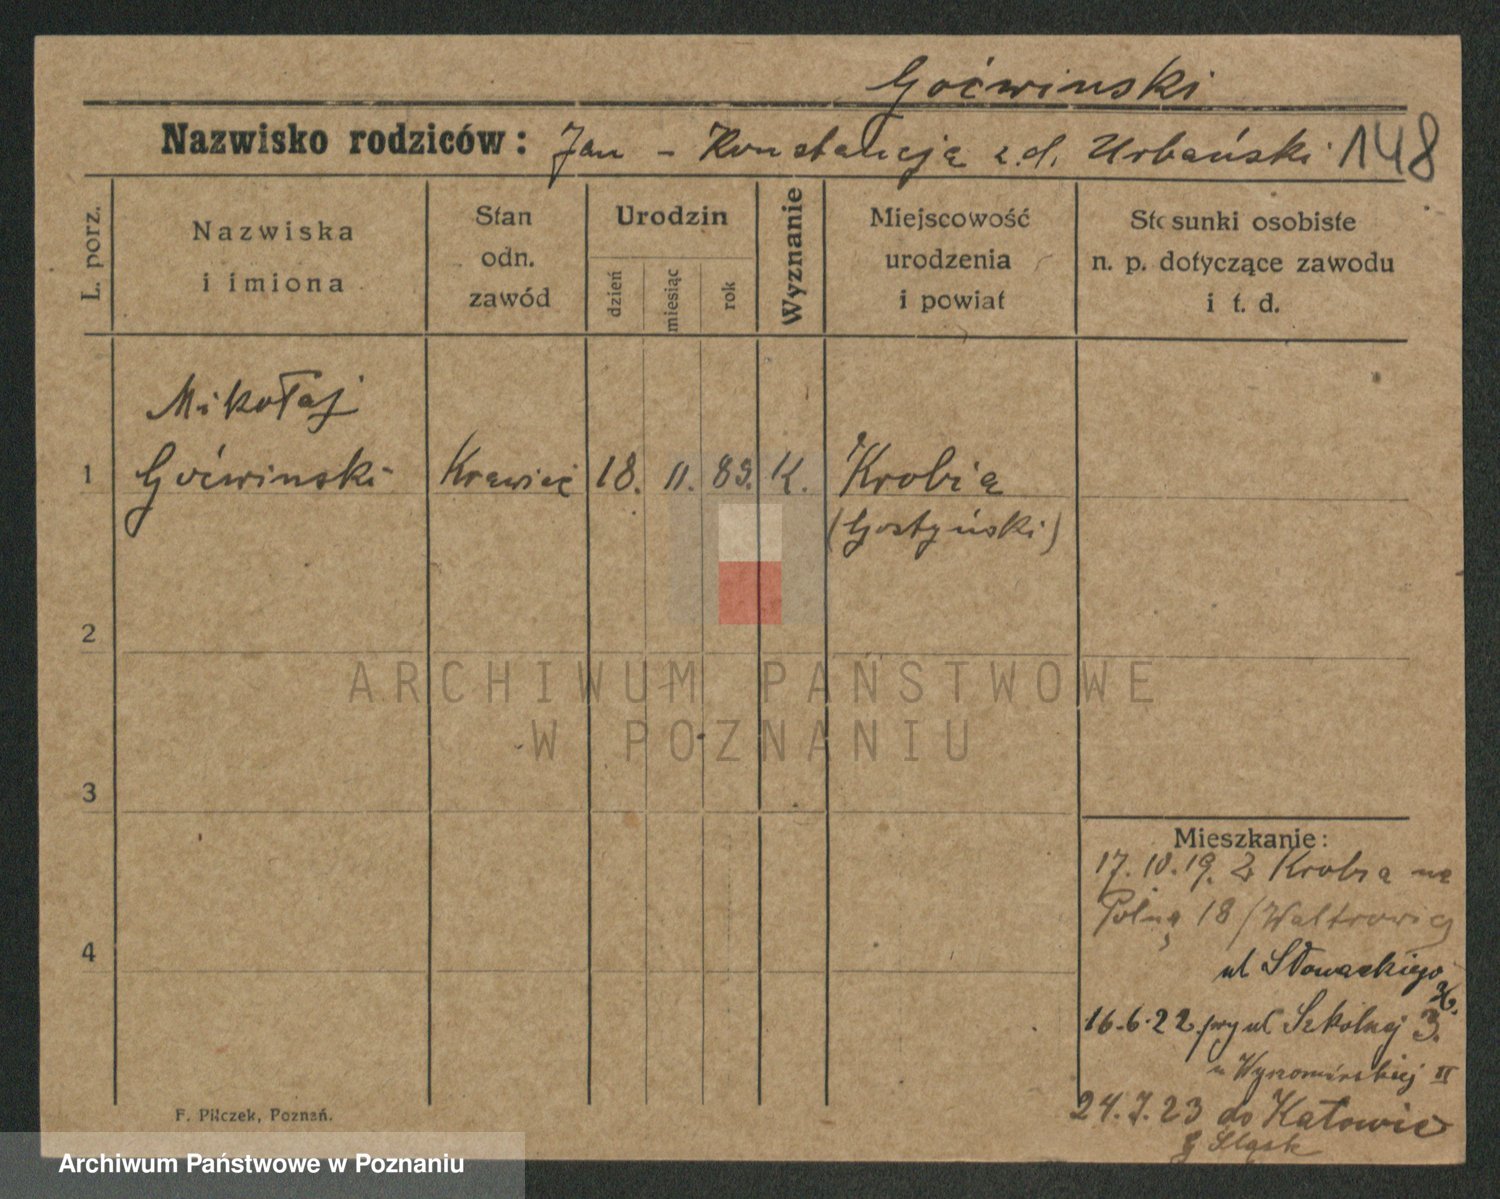 Goćwinski
Nazwisko rodziców: Jan - Konstancja z.d. Urbański 148
L. porz.
Nazwiska
i imiona
Stan
odn.
zawód
Urodzin
dzień
miesiąc
rok
Wyznanie
Miejscowość
urodzenia
i powiat
Stosunki osobiste
n. p. dotyczące zawodu
i t. d.
Mikołaj
1 Goćwinski Krawiec 18. 11. 89. K. Krobia
(Gostyński)
2
ARCHIWUM PAŃSTWOWE
W POZNANIU
3
Mieszkanie:
17.10.19. Z Krobia na
Polną 18
4
ul Słowackiego
16.6.22. przy ul Szkolnej 3.
II
24.7.23 do Katowic
G Śląsk
F. Pilczek, Poznań.
Archiwum Państwowe w Poznaniu